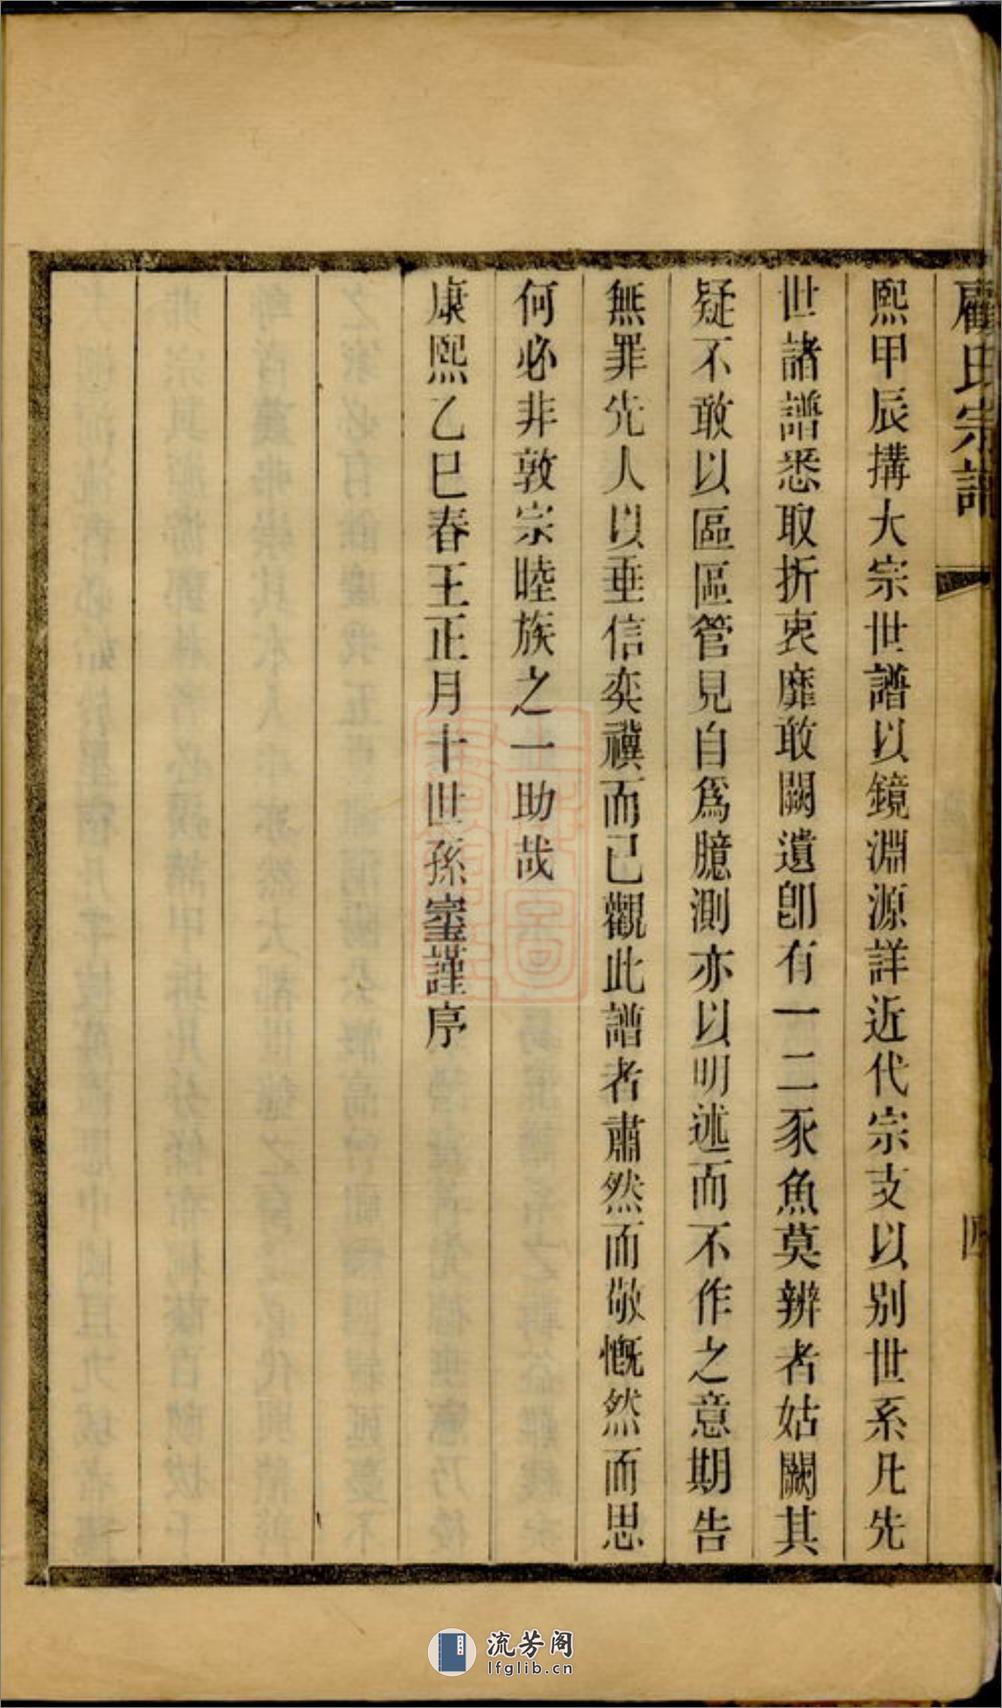 顧氏宗譜
四
熙甲辰搆大宗世譜以鏡淵源詳近代宗支以別世系凡先
世諸譜悉取折衷靡敢闕遺卽有一二豕魚莫辨者姑闕其
疑不敢以區區管見自爲臆測亦以明述而不作之意期告
無罪先人以垂信奕禩而已觀此譜者肅然而敬慨然而思
何必非敦宗睦族之一助哉
康熙乙巳春王正月十世孫璽謹序
流芳阁
lfglib.cn